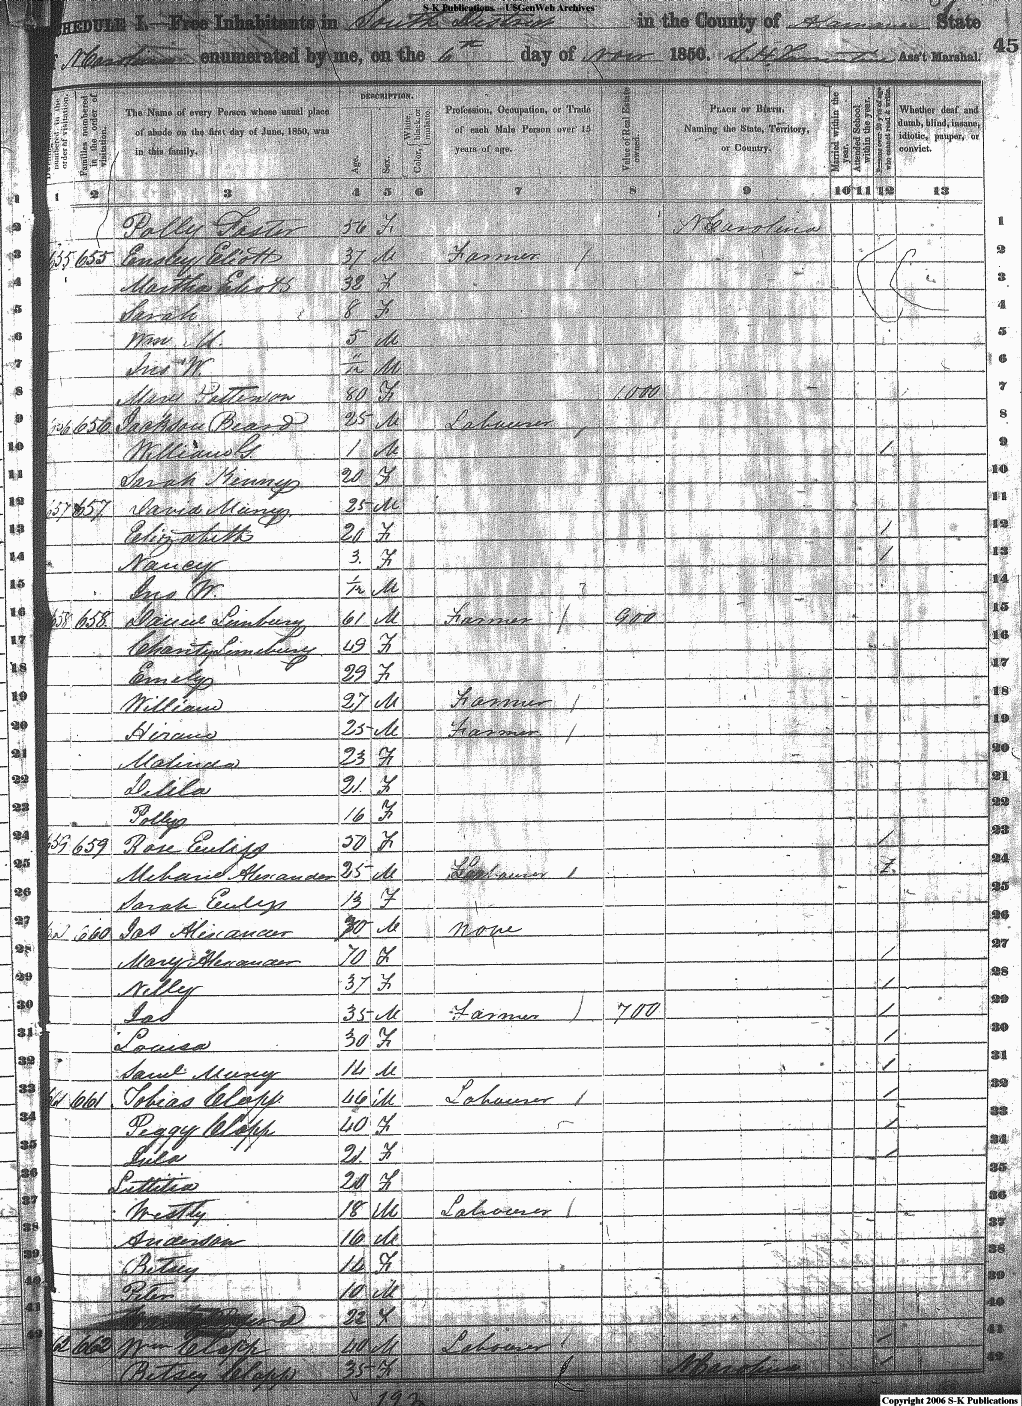 S-K Publications - USGenWeb Archives
SCHEDULE I.—Free Inhabitants in South District in the County of Alamance State
N Carolina enumerated by me, on the 6th day of Nov 1850. Ass't Marshal. 45
DESCRIPTION.
numbered in the order of visitation. Families numbered in the order of visitation. The Name of every Person whose usual place of abode on the first day of June, 1850, was in this family. Age. Sex. Color, White, black, or mulatto. Profession, Occupation, or Trade of each Male Person over 15 years of age. Value of Real Estate owned. PLACE OF BIRTH. Naming the State, Territory, or Country. Married within the year. Attended School within the year. Persons over 20 y'rs of age who cannot read & write. Whether deaf and dumb, blind, insane, idiotic, pauper, or convict.
1 2 3 4 5 6 7 8 9 10 11 12 13
Polly Foster 56 F N Carolina 1
655 655 Ensley Eliott 37 M Farmer / 2
Martha Eliott 32 F 3
Sarah 8 F 4
Wm M. 5 M 5
Jno W. M 6
Mary Patterson 80 F 1000 7
656 656 Jackson Beard 25 M Labourer / 8
William G 1 M / 9
Sarah Kinney 20 F 10
657 657 David Murry 25 M 11
Elizabeth 20 F / 12
Nancy 3 F / 13
Jno W. 1/12 M 14
658 658 Daniel Limbury 61 M Farmer / 900 15
Charity Limebury 49 F 16
Emely 29 F 17
William 27 M Farmer / 18
Hiram 25 M Farmer / 19
Malinda 23 F 20
Delila 21 F 21
Polly 16 F 22
659 659 Rose Euliss 50 F / 23
Mebane Alexander 25 M Labourer / 24
Sarah Eulys 13 F 25
660 Jas Alexander M None 26
Mary Alexander 70 F / 27
Nelly 37 F / 28
Jas 35 M Farmer / 700 / 29
Louisa 30 F / 30
Saml Murry 14 M / 31
661 661 Tobias Clapp 46 M Labourer / / 32
Peggy Clapp 40 F / 33
Lula 21 F / 34
Lettitia 20 F 35
Westly 18 M Labourer / 36
Anderson 16 M 37
Betsey 14 F 38
Peter 10 M 39
22 40
662 662 Wm Clapp 40 M Labourer / / 41
Betsey Clapp 35 F N Carolina / 42
Copyright 2006 S-K Publications